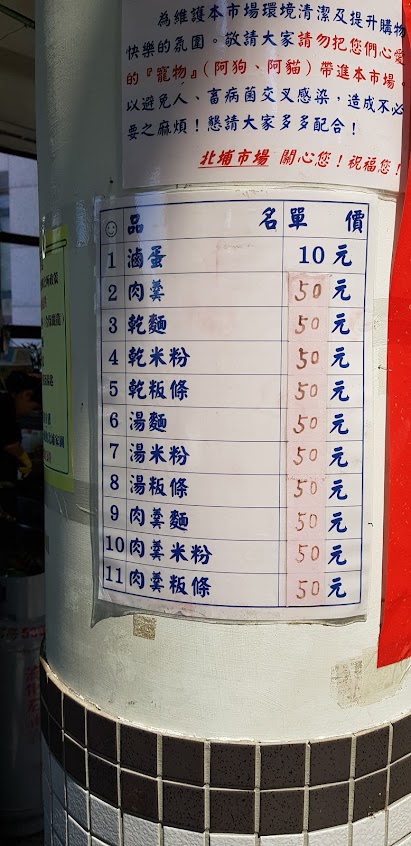 為維護本市場環境清潔及提升購物
快樂的氛圍。敬請大家請勿把您們心愛
的『寵物』(阿狗、阿貓)帶進本市場。
以避免人、畜病菌交叉感染,造成不必
要之麻煩!懇請大家多多配合!
北埔市場 關心您!祝福您!
品 名 單 價
1 滷蛋 10元
2 肉羹 50元
3 乾麵 50元
4 乾米粉 50元
5 乾粄條 50元
6 湯麵 50元
7 湯米粉 50元
8 湯粄條 50元
9 肉羹麵 50元
10 肉羹米粉 50元
11 肉羹粄條 50元